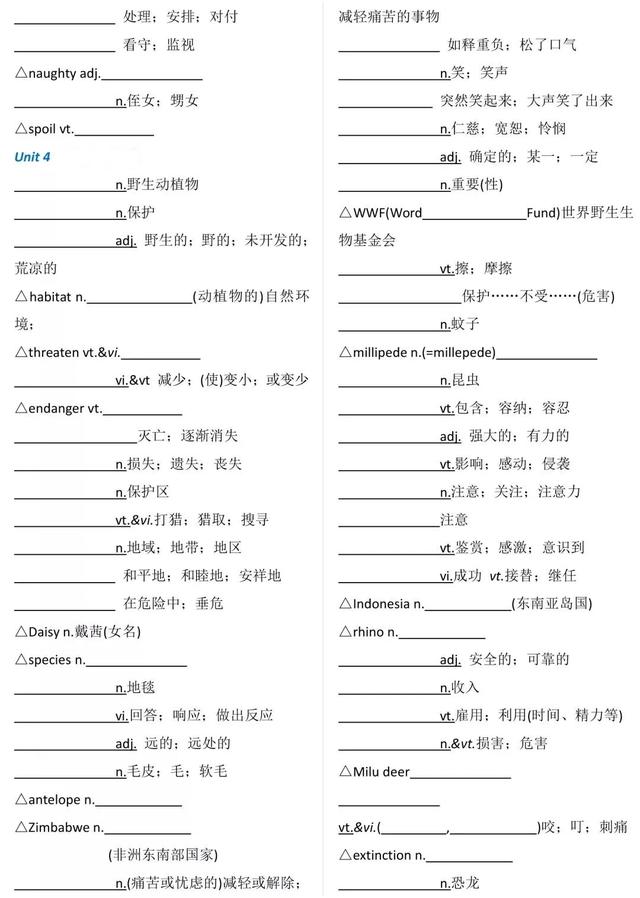 ____________ 处理；安排；对付
____________ 看守；监视
△naughty adj.____________
____________n.侄女；甥女
△spoil vt.__________
Unit 4
____________n.野生动植物
____________n.保护
____________adj. 野生的；野的；未开发的；
荒凉的
△habitat n.____________(动植物的)自然环
境；
△threaten vt.&vi.__________
____________vi.&vt 减少；(使)变小；或变少
△endanger vt.__________
______________灭亡；逐渐消失
____________n.损失；遗失；丧失
____________n.保护区
____________vt.&vi.打猎；猎取；搜寻
____________n.地域；地带；地区
____________ 和平地；和睦地；安祥地
____________ 在危险中；垂危
△Daisy n.戴茜(女名)
△species n.____________
____________n.地毯
____________vi.回答；响应；做出反应
____________adj. 远的；远处的
____________n.毛皮；毛；软毛
△antelope n.__________
△Zimbabwe n.__________
(非洲东南部国家)
____________n.(痛苦或忧虑的)减轻或解除；
减轻痛苦的事物
____________ 如释重负；松了口气
____________n.笑；笑声
____________ 突然笑起来；大声笑了出来
____________n.仁慈；宽恕；怜悯
____________adj. 确定的；某一；一定
____________n.重要(性)
△WWF(Word____________Fund)世界野生生
物基金会
____________vt.擦；摩擦
______________保护……不受……(危害)
____________n.蚊子
△millipede n.(=millepede)____________
____________n.昆虫
____________vt.包含；容纳；容忍
____________adj. 强大的；有力的
____________vt.影响；感动；侵袭
____________n.注意；关注；注意力
____________注意
____________vt.鉴赏；感激；意识到
____________vi.成功 vt.接替；继任
△Indonesia n.__________(东南亚岛国)
△rhino n.__________
____________adj. 安全的；可靠的
____________n.收入
____________vt.雇用；利用(时间、精力等)
____________n.&vt.损害；危害
△Milu deer____________
____________
vt.&vi.(________,__________)咬；叮；刺痛
△extinction n.__________
____________n.恐龙